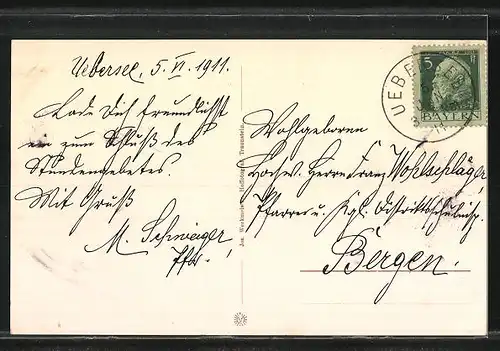 Uebersee, 5. VI. 1911.
Lade Dich freundlichst
ein zum Schluß des
Stundengebetes.
Mit Gruß
M. Schweiger
Pfr.
Jos. Werkmeister, Hoffotogr., Traunstein.
5
BAYERN
UEBE
Wohlgeboren
Hochw. Herrn Franz Wohlschläger
Pfarrer u. Kgl. Distriktsschulinsp.
Bergen.